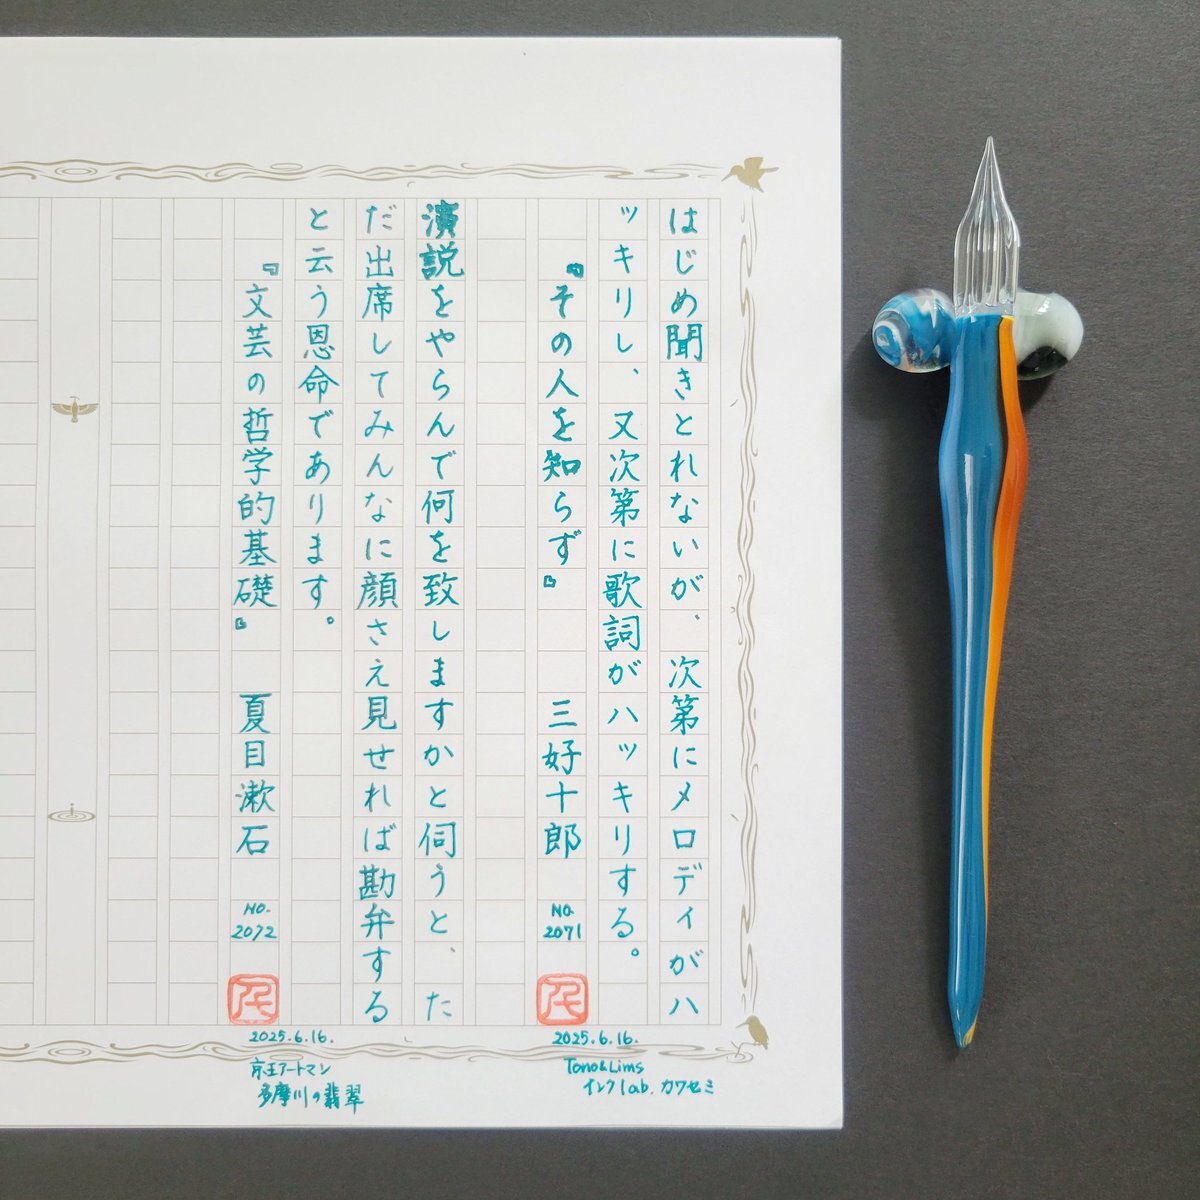 はじめ聞きとれないが、次第にメロディがハ
ッキリし、又次第に歌詞がハッキリする。
『その人を知らず』 三好十郎 NO. 2071
2025.6.16.
Tono&Lims
インクlab. カワセミ
演説をやらんで何を致しますかと伺うと、た
だ出席してみんなに顔さえ見せれば勘弁する
と云う恩命であります。
『文芸の哲学的基礎』 夏目漱石 NO. 2072
2025.6.16.
京王アートマン
多摩川の翡翠